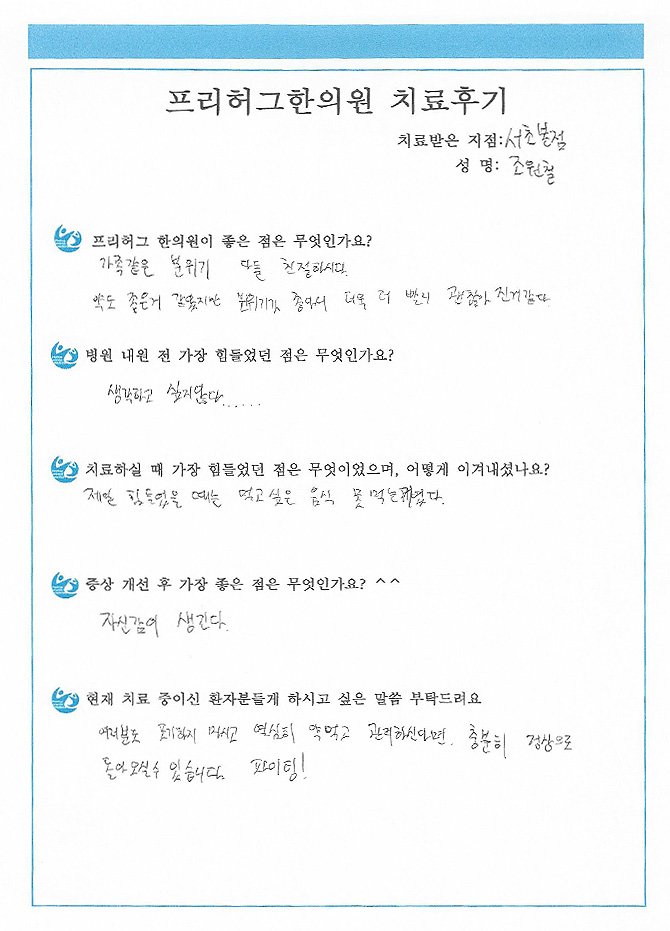 프리허그한의원 치료후기
치료받은 지점:서초본점
성 명: 조원철
프리허그 한의원이 좋은 점은 무엇인가요?
가족같은 분위기 다들 친절하시다.
약도 좋은거 같았지만 분위기가 좋아서 더욱 더 빨리 괜찮아 진거같다.
병원 내원 전 가장 힘들었던 점은 무엇인가요?
생각하고 싶지않다......
치료하실 때 가장 힘들었던 점은 무엇이었으며, 어떻게 이겨내셨나요?
제일 힘들었을 때는 먹고싶은 음식 못먹는
증상 개선 후 가장 좋은 점은 무엇인가요? ^^
자신감이 생긴다.
현재 치료 중이신 환자분들게 하시고 싶은 말씀 부탁드려요
여러분도 포기하지 마시고 열심히 약먹고 관리하신다면. 충분히 정상으로
돌아오실수 있습니다. 파이팅!